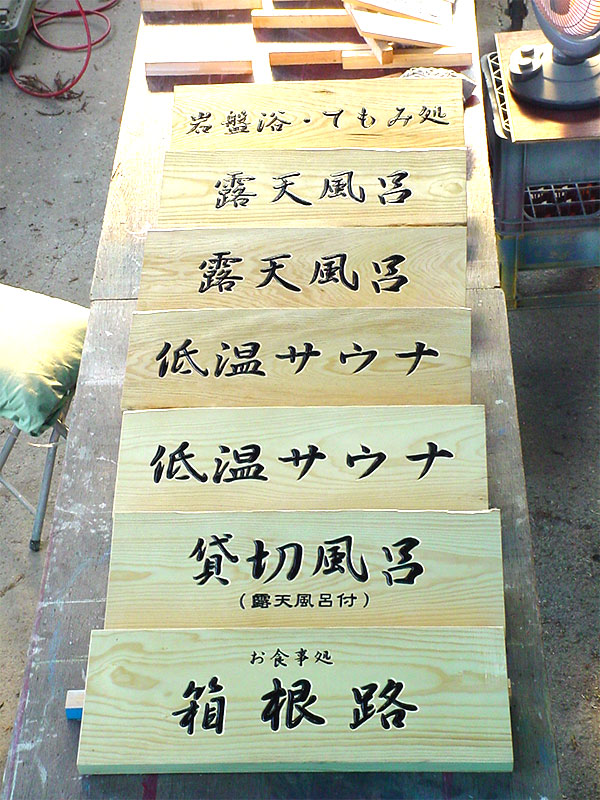 岩盤浴・てもみ処
露天風呂
露天風呂
低温サウナ
低温サウナ
貸切風呂
(露天風呂付)
お食事処
箱根路